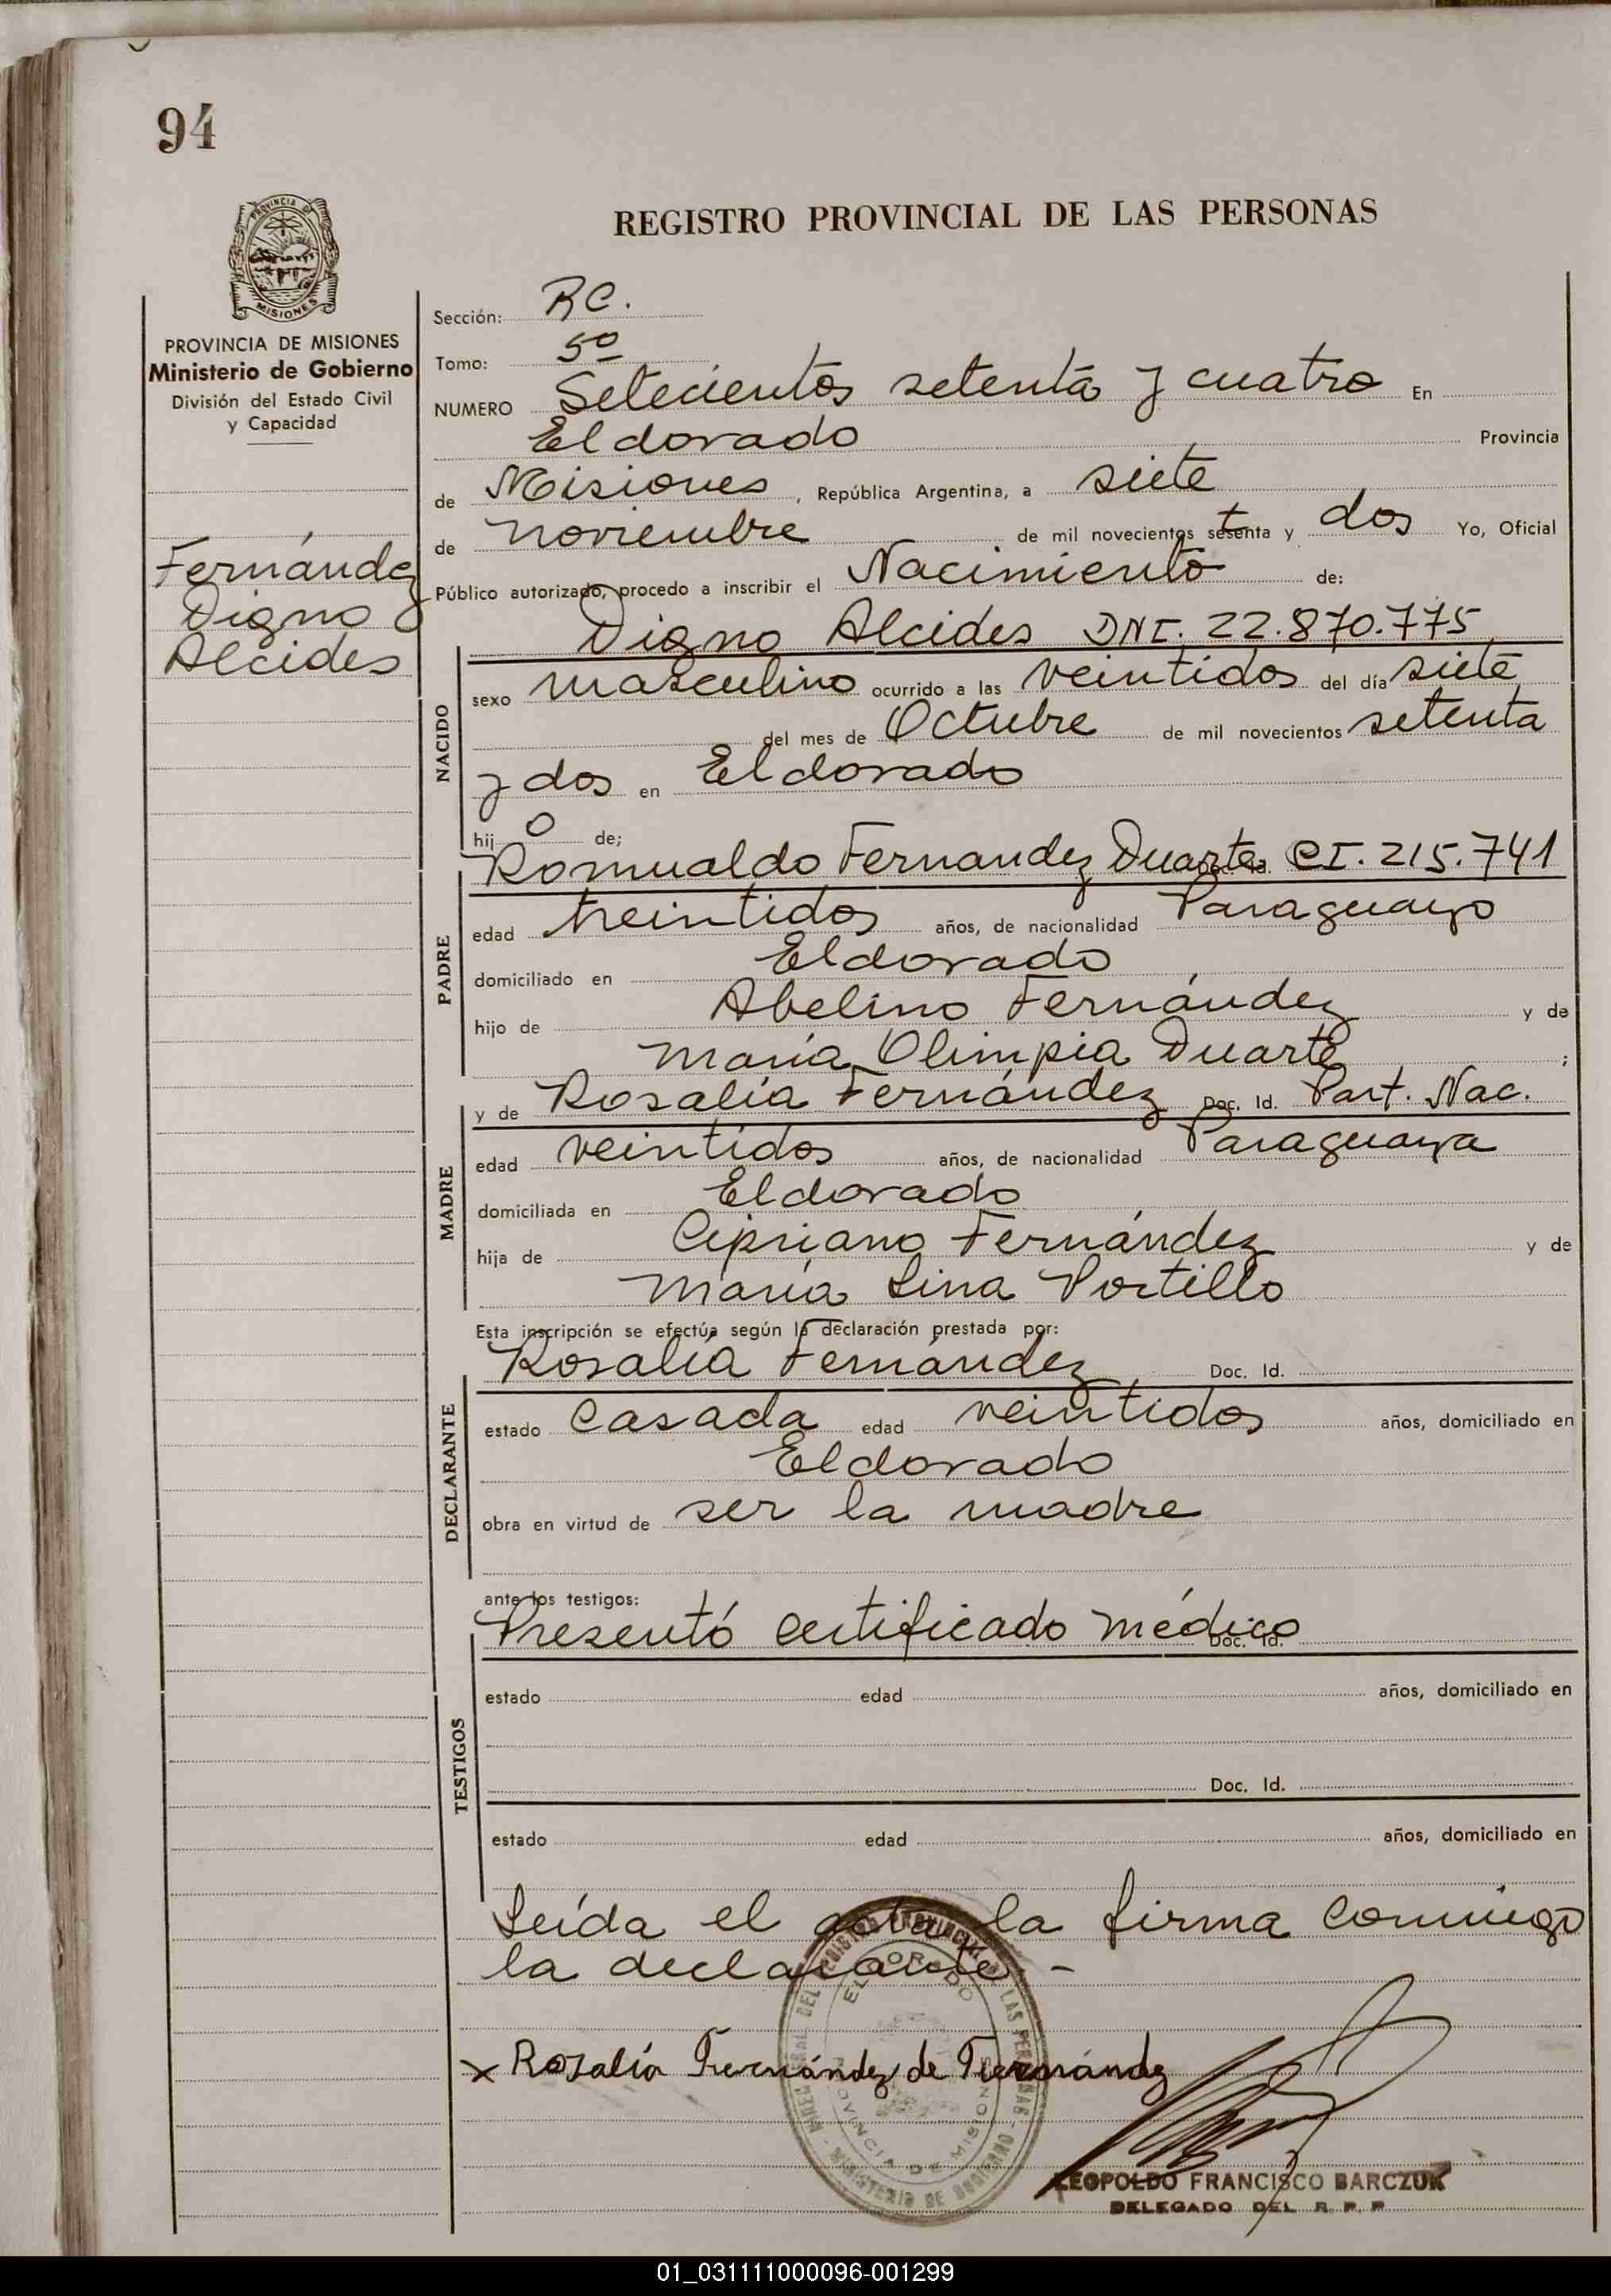 94
PROVINCIA DE
MISIONES
PROVINCIA DE MISIONES
Ministerio de Gobierno
División del Estado Civil
y Capacidad
Fernández
Digno
Alcides
REGISTRO PROVINCIAL DE LAS PERSONAS
Sección: RC.
Tomo: 5º
NUMERO Setecientos setenta y cuatro En
Eldorado Provincia
de Misiones, República Argentina, a siete
de noviembre de mil novecientos setenta y dos Yo, Oficial
Público autorizado, procedo a inscribir el Nacimiento de:
Digno Alcides DNI. 22.870.775
NACIDO
sexo masculino ocurrido a las veintidos del día siete
del mes de Octubre de mil novecientos setenta
y dos en Eldorado
hij o de;
Romualdo Fernandez Duarte Doc. Id. CI. 215.741
PADRE
edad treintidos años, de nacionalidad Paraguayo
domiciliado en Eldorado
hijo de Abelino Fernández y de
María Olimpia Duarte ;
y de Rosalía Fernández Doc. Id. Part. Nac.
MADRE
edad veintidos años, de nacionalidad Paraguaya
domiciliada en Eldorado
hija de Cipriano Fernández y de
María Lina Portillo
Esta inscripción se efectúa según la declaración prestada por:
Rosalía Fernández Doc. Id.
DECLARANTE
estado casada edad veintidos años, domiciliado en
Eldorado
obra en virtud de ser la madre
ante los testigos:
Presentó certificado médico Doc. Id.
TESTIGOS
estado edad años, domiciliado en
Doc. Id.
estado edad años, domiciliado en
Leída el acta, la firma conmigo
la declarante -
x Rosalía Fernández de Fernández
ELDORADO
PROVINCIA DE MISIONES
MINISTERIO DE GOBIERNO
LEOPOLDO FRANCISCO BARCZUK
DELEGADO DEL R. P. P.
01_031111000096-001299